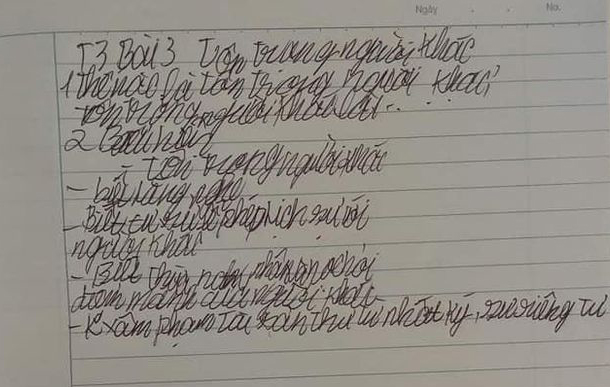 Ngày . . No.
T3 Bài 3 Tôn trọng người khác
1 Thế nào là tôn trọng người khác
tôn trọng người khác là...
2 Bài học
- Tôn trọng người khác
- biết lắng nghe
- Biết cư xử lịch sự với
người khác
- Biết thừa nhận
điểm mạnh của người khác
- K xâm phạm tài sản thư từ nhật ký, sự riêng tư